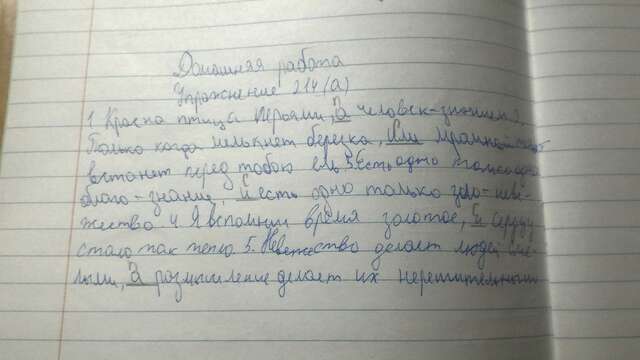 Домашняя работа
Упражнение 214(а)
1 Красна птица перьями, а человек-знанием 2.
Только когда мелькнет березка, или мрачной
встанет перед тобою ель 3 Есть одно только одно
благо-знание, и есть одно только зло-неве-
жество 4 Я вспомнил время золотое, и сердцу
стало так тепло 5. Невежество делает людей сме-
лыми, а размышление делает их нерешительными